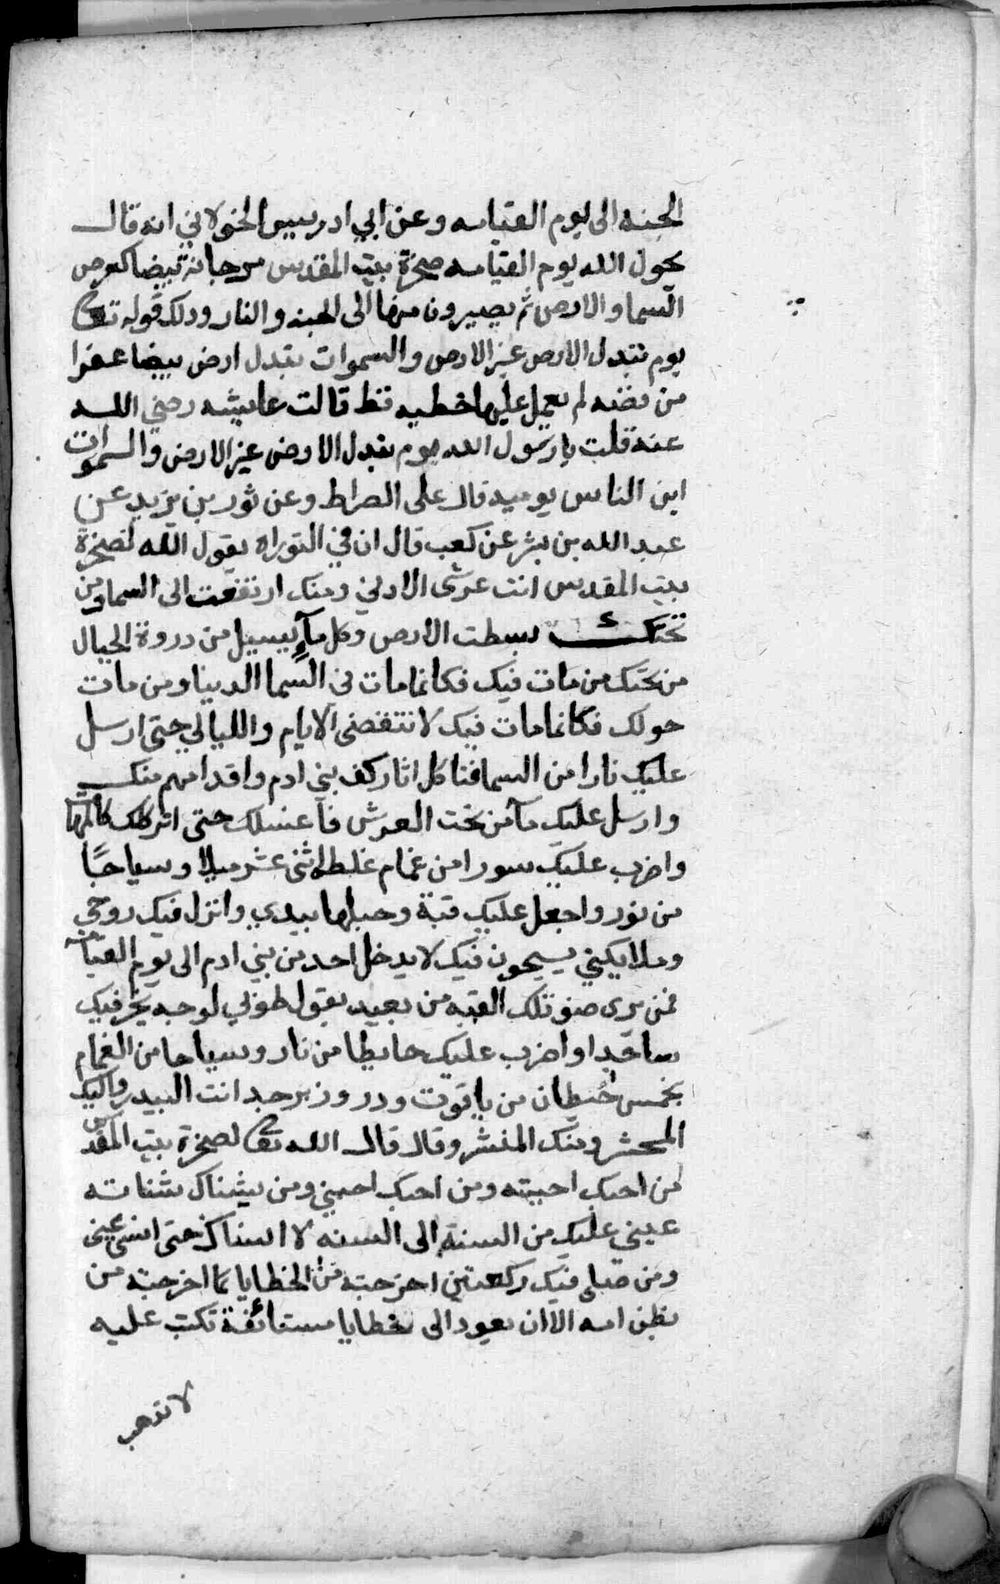 الجنه الى يوم القيامه وعن ابي ادريس الخولاني انه قال
يحول الله يوم القيامه صخرة بيت المقدس مرجانة بيضا كعرض
السما والارض ثم يصيرون منها الى الجنه والنار وذلك قوله تعالى
يوم تبدل الارض غير الارض والسموات تبدل ارض بيضا عفرا
من فضه لم يعمل عليها خطيه قط قالت عايشه رضي الله
عنه قلت يا رسول الله يوم تبدل الارض غير الارض والسموات
اين الناس يوميد قال على الصراط وعن ثور بن يزيد عن
عبد الله بن بشر عن كعب قال ان في التوراه يقول الله لصخرة
بيت المقدس انت عرشى الادني ومنك ارتفعت الى السما ومن
تحتك بسطت الارض وكل مآء يسيل من دروة الجبال
من تحتك من مات فيك فكانما مات في السما الدنيا ومن مات
حولك فكانما مات فيك لا تنقضى الايام والليالي حتى ارسل
عليك نارا من السما فتاكل اثار كف بني ادم واقدامهم منك
وارسل عليك مآ من تحت العرش فاغسلك حتى اتركك كالمها
واضرب عليك سورا من غمام غلظه اثنى عشر ميلا وسياجًا
من نور واجعل عليك قبة وجبلها بيدي وانزل فيك روحي
وملايكتي يسبحون فيك لا يدخل احد من بني ادم الى يوم القيامه
فمن يرى ضو تلك القبه من بعيد يقول طوبي لوجه يخر فيك
ساجدا واضرب عليك حايطا من نار وسياجا من الغمام
بخمس حيطان من ياقوت ودر وزبرجد انت البيدر واليك
المحشر ومنك المنشر وقال قال الله تعالى لصخرة بيت المقدس
من احبك احببته ومن احبك احبني ومن يشناك شناته
عيني عليك من السنة الى السنه لا انساك حتى انسى عيني
ومن صلى فيك ركعتين اخرجته من الخطايا كما اخرجته من
بطن امه الا ان يعود الى خطايا مستانفة تكتب عليه
لا تذهب